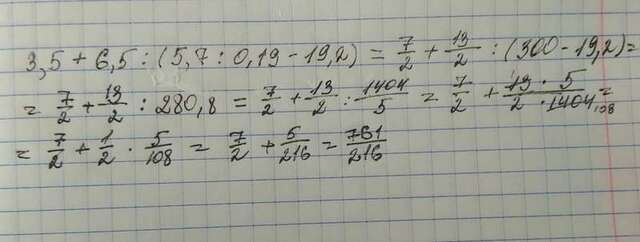 3,5 + 6,5 : (5,7 : 0,19 - 19,2) = 7/2 + 13/2 : (300 - 19,2) =
= 7/2 + 13/2 : 280,8 = 7/2 + 13/2 : 1404/5 = 7/2 + 13 · 5/2 · 1404 108 =
= 7/2 + 1/2 · 5/108 = 7/2 + 5/216 = 761/216